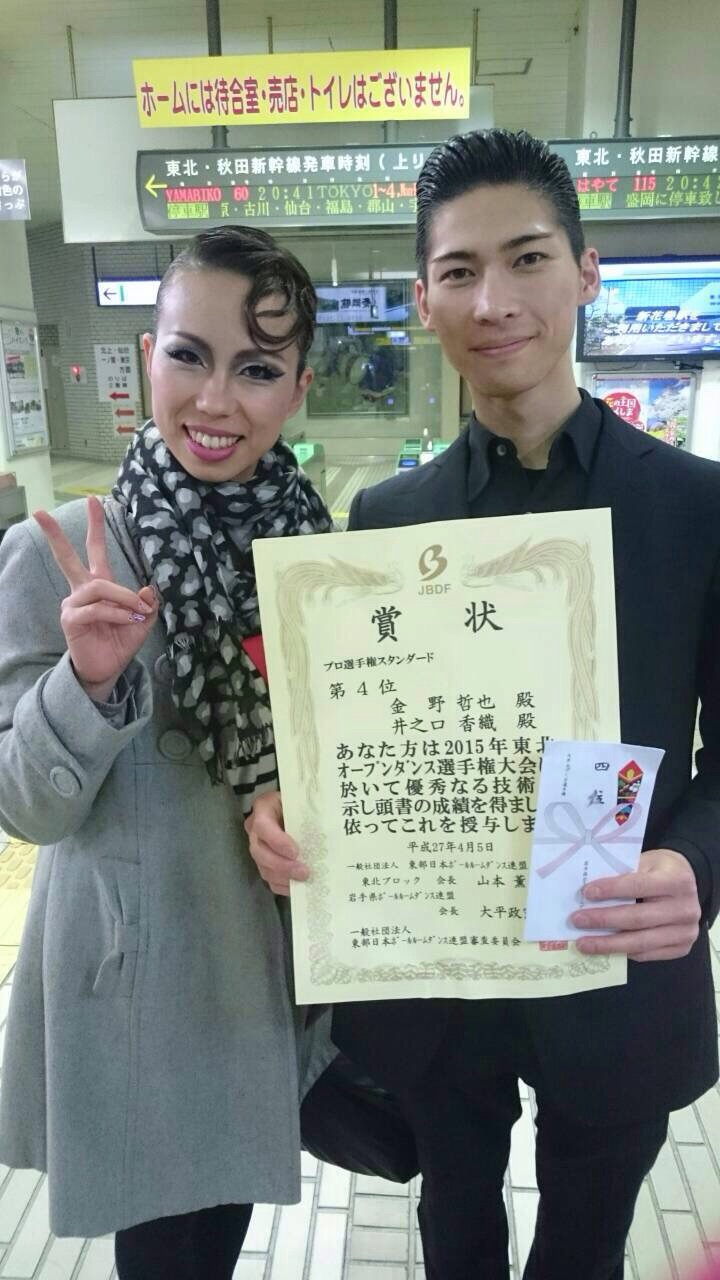 ホームには待合室・売店・トイレはございません。
東北・秋田新幹線発車時刻(上り
東北・秋田新幹線
YAMABIKO 60 20:41 TOKYO
はやて 115 20:4
停車駅
・古川・仙台・福島・郡山・
停車駅 盛岡に停車致し
新花巻駅を
ご利用いただきまして
ございます
北上・仙台
一ノ関・東京
方面
JBDF
賞状
プロ選手権スタンダード
第4位
金野哲也 殿
井之口香織 殿
あなた方は2015年東北
オープンダンス選手権大会
於いて優秀なる技術
示し頭書の成績を得まし
依ってこれを授与しま
平成27年4月5日
一般社団法人 東部日本ボールルームダンス連盟
東北ブロック 会長 山本 薫
岩手県ボールルームダンス連盟
会長 大平政
一般社団法人
東部日本ボールルームダンス連盟審査委員会
四位